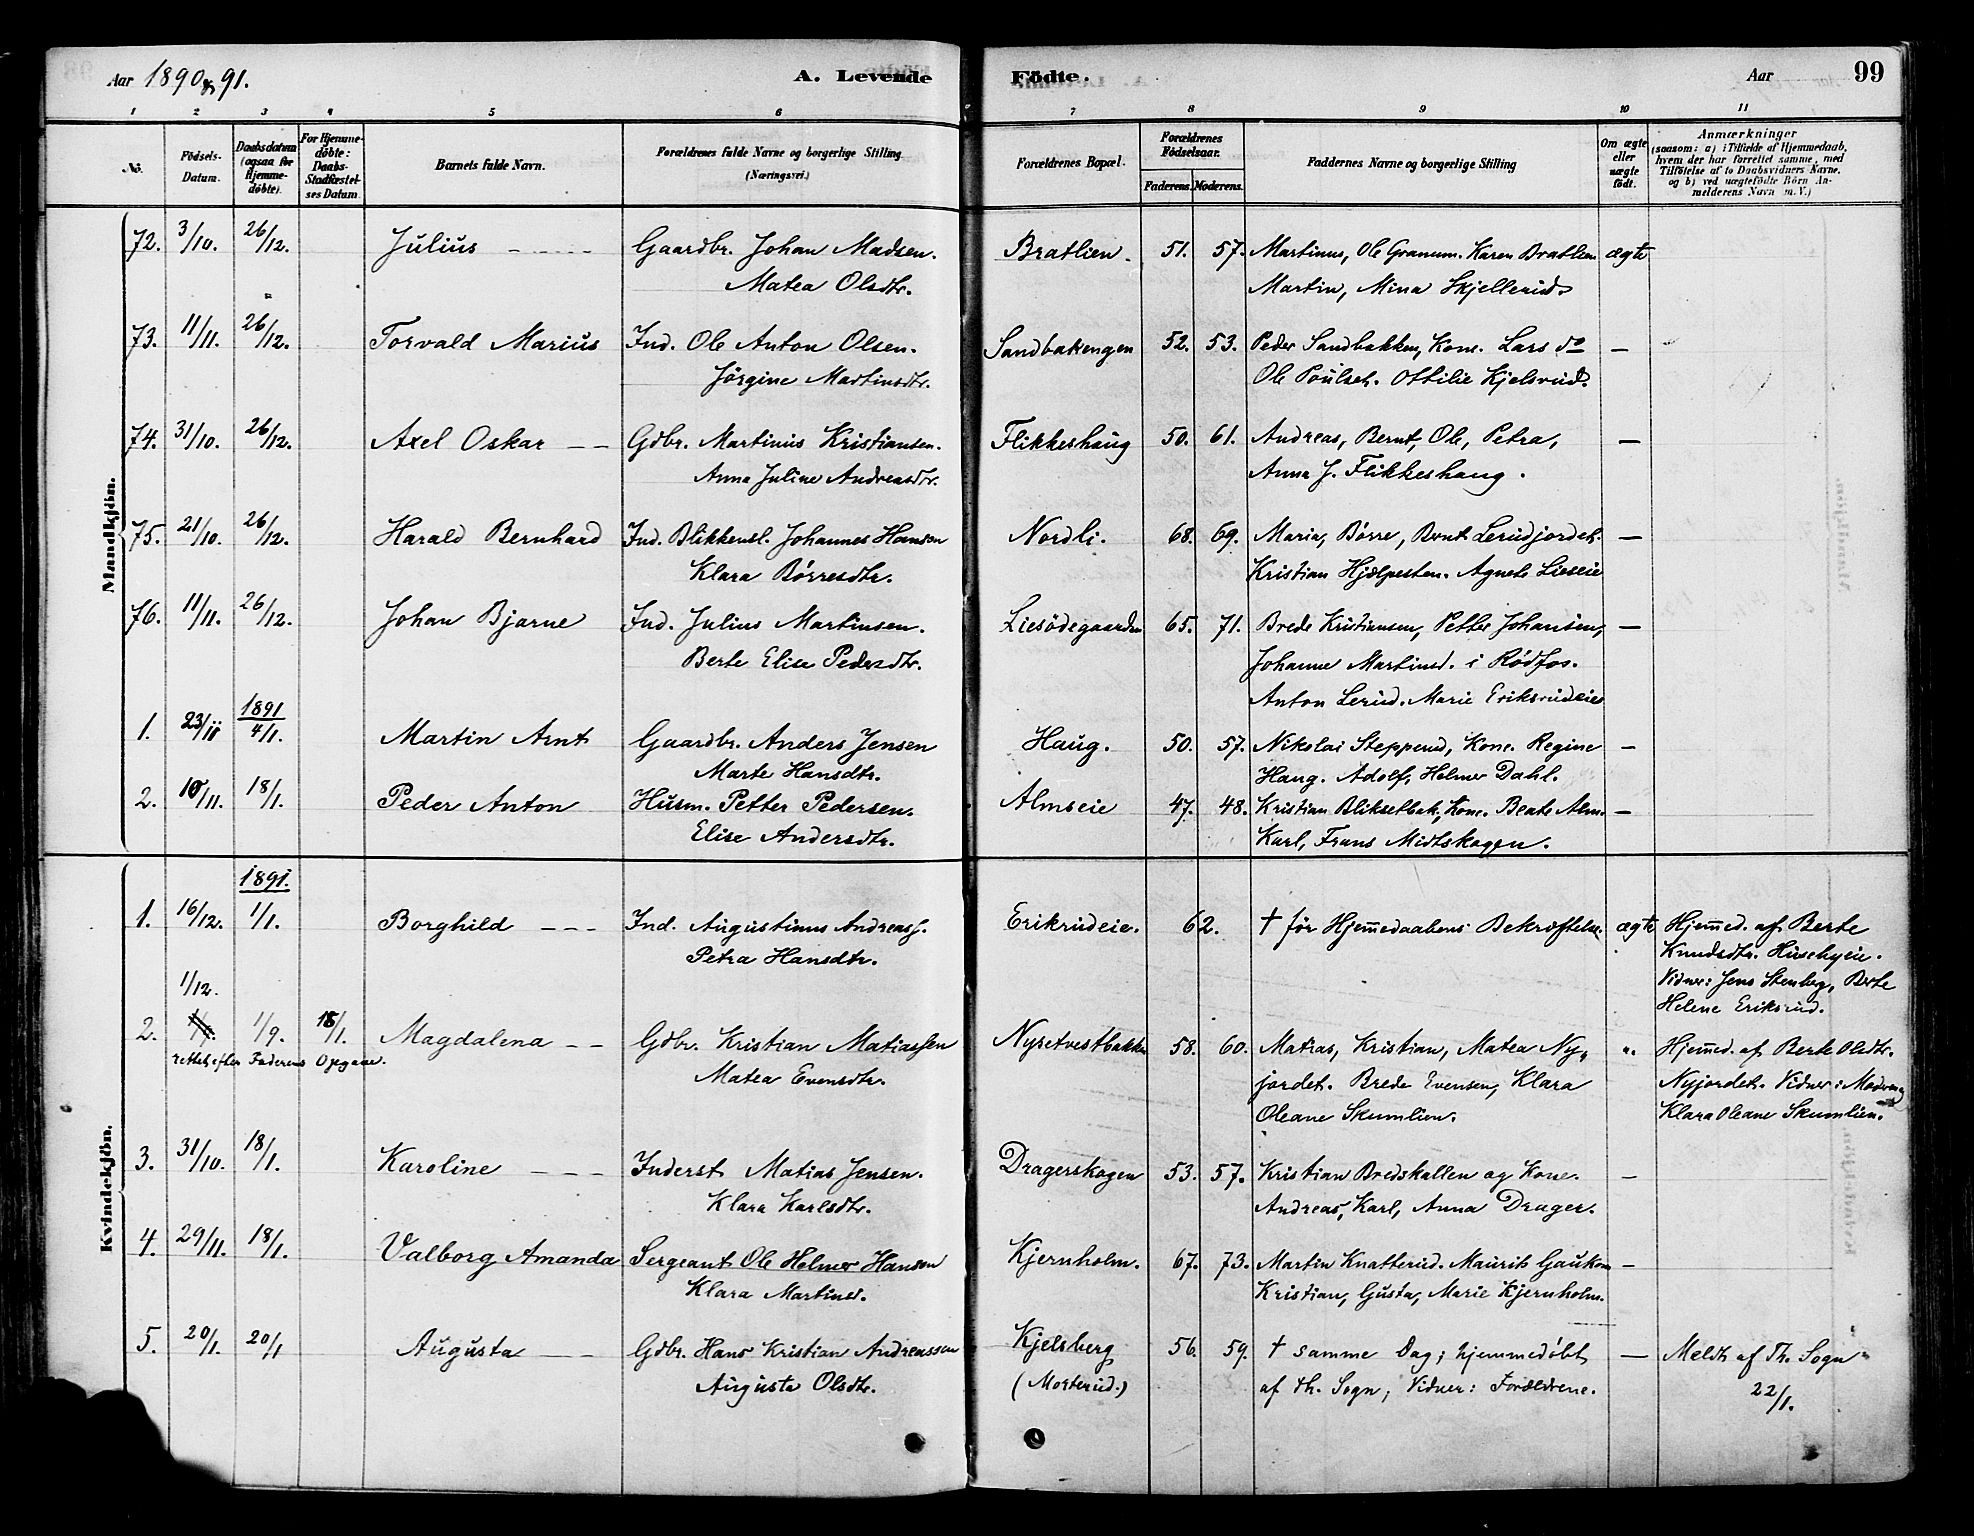 Aar 1890 & 91.
A. Levende
Födte.
Aar
99
1 2 3 4 5 6 7 8 9 10 11
No.
Födsels-Datum.
Daabsdatum (ogsaa for Hjemme-döbte).
For Hjemme-döbte: Daabs-Stadfæstel-ses Datum
Barnets fulde Navn.
Forældrenes fulde Navne og borgerlige Stilling (Næringsvei.)
Forældrenes Bopæl.
Forældrenes Födselsaar.
Faderens. Moderens.
Faddernes Navne og borgerlige Stilling
Om ægte eller uægte födt.
Anmærkninger
(saasom: a) i Tilfælde af Hjemmedaab, hvem der har forrettet samme, med Tilföielse af to Daabsvidners Navne, og b) ved uægtefödte Börn An-melderens Navn m. V.)
Mandkjön.
72. 3/10. 26/12. Julius Gaardbr. Johan Madsen. Bratlien. 51. 57. Martinus, Ole Granum. Karen Bratlien ægte
Matea Olsdtr. Martin, Mina Skjellerud.
73. 11/11. 26/12. Torvald Marius Ind. Ole Anton Olsen. Sandbakengen 52. 53. Peder Sandbakken, Kone. Lars do —
Jörgine Martinsdtr. Ole Poulset. Ottilie Kjelsrud.
74. 31/10. 26/12. Axel Oskar Gdbr. Martinus Kristiansen. Flikkeshaug 50. 61. Andreas, Bernt, Ole, Petra, —
Anna Juline Andreasdtr. Anna J. Flikkeshaug.
75. 21/10. 26/12. Harald Bernhard Ind. Blikkensl. Johannes Hansen Nordli. 68. 69. Maria, Børre, Bernt Lerudjordet. —
Klara Børresdtr. Kristian Hjælpesten. Agnete Lieseie
76. 11/11. 26/12. Johan Bjarne Ind. Julius Martinsen. Liesödegaarden 65. 71. Brede Kristiansen, Petter Johansen, —
Berte Elise Pedersdtr. Johanne Martinsd. i Rødfos.
Anton Lerud. Marie Eriksrudeies
1891
1. 23/11 4/1. Martin Arnt Gaardbr. Anders Jensen Haug. 50. 57. Nikolai Stepperud, Kone. Regine —
Marte Hansdtr. Haug. Adolf, Helmer Dahl.
2. 10/11. 18/1. Peder Anton Husm. Petter Pedersen. Almseie 47. 48. Kristian Bliksetbak, Kone. Beate Alm. —
Elise Andersdtr. Karl, Frans Midtskogen.
Kvindekjön.
1891.
1. 16/12. 1/1. Borghild Ind. Augustinus Andreass. Erikrudeie. 62. † før Hjemmedaabens Bekræftelse. ægte Hjemmed. af Berte
Petra Hansdtr. Knudsdtr. Husebyeie.
Vidner: Jens Stenberg, Berte
Helene Eriksrud.
1/12.
2. 1/9. 18/1. Magdalena Gdbr. Kristian Matiassen Nysetvestbakken 58. 60. Matias, Kristian, Matea Ny- " Hjemmed. af Berte Olsdtr.
rettet efter Faderens Opgave.
Matea Evensdtr. jordet. Brede Evensen, Klara Nyjordet. Vidner: Moderen og
Oleane Skumlien. Klara Oleane Skumlien.
3. 31/10. 18/1. Karoline Inderst Matias Jensen. Dragerskogen 53. 57. Kristian Bredskallen og Kone. —
Klara Karlsdtr. Andreas, Karl, Anna Drager.
4. 29/11. 18/1. Valborg Amanda Sergeant Ole Helmer Hansen Kjernholm. 67. 73. Martin Knatterud. Maurits Gaukom —
Klara Martinsd. Kristian, Gusta, Marie Kjernholm.
5. 20/1. 20/1 Augusta Gdbr. Hans Kristian Andreassen Kjelsberg 56. 59. † samme Dag; hjemmedøbt — Meldt af Th. Sogn
Augusta Olsdtr. (Mosterud.) af Th. Sogn, Vidner: Forældrene. 22/1.